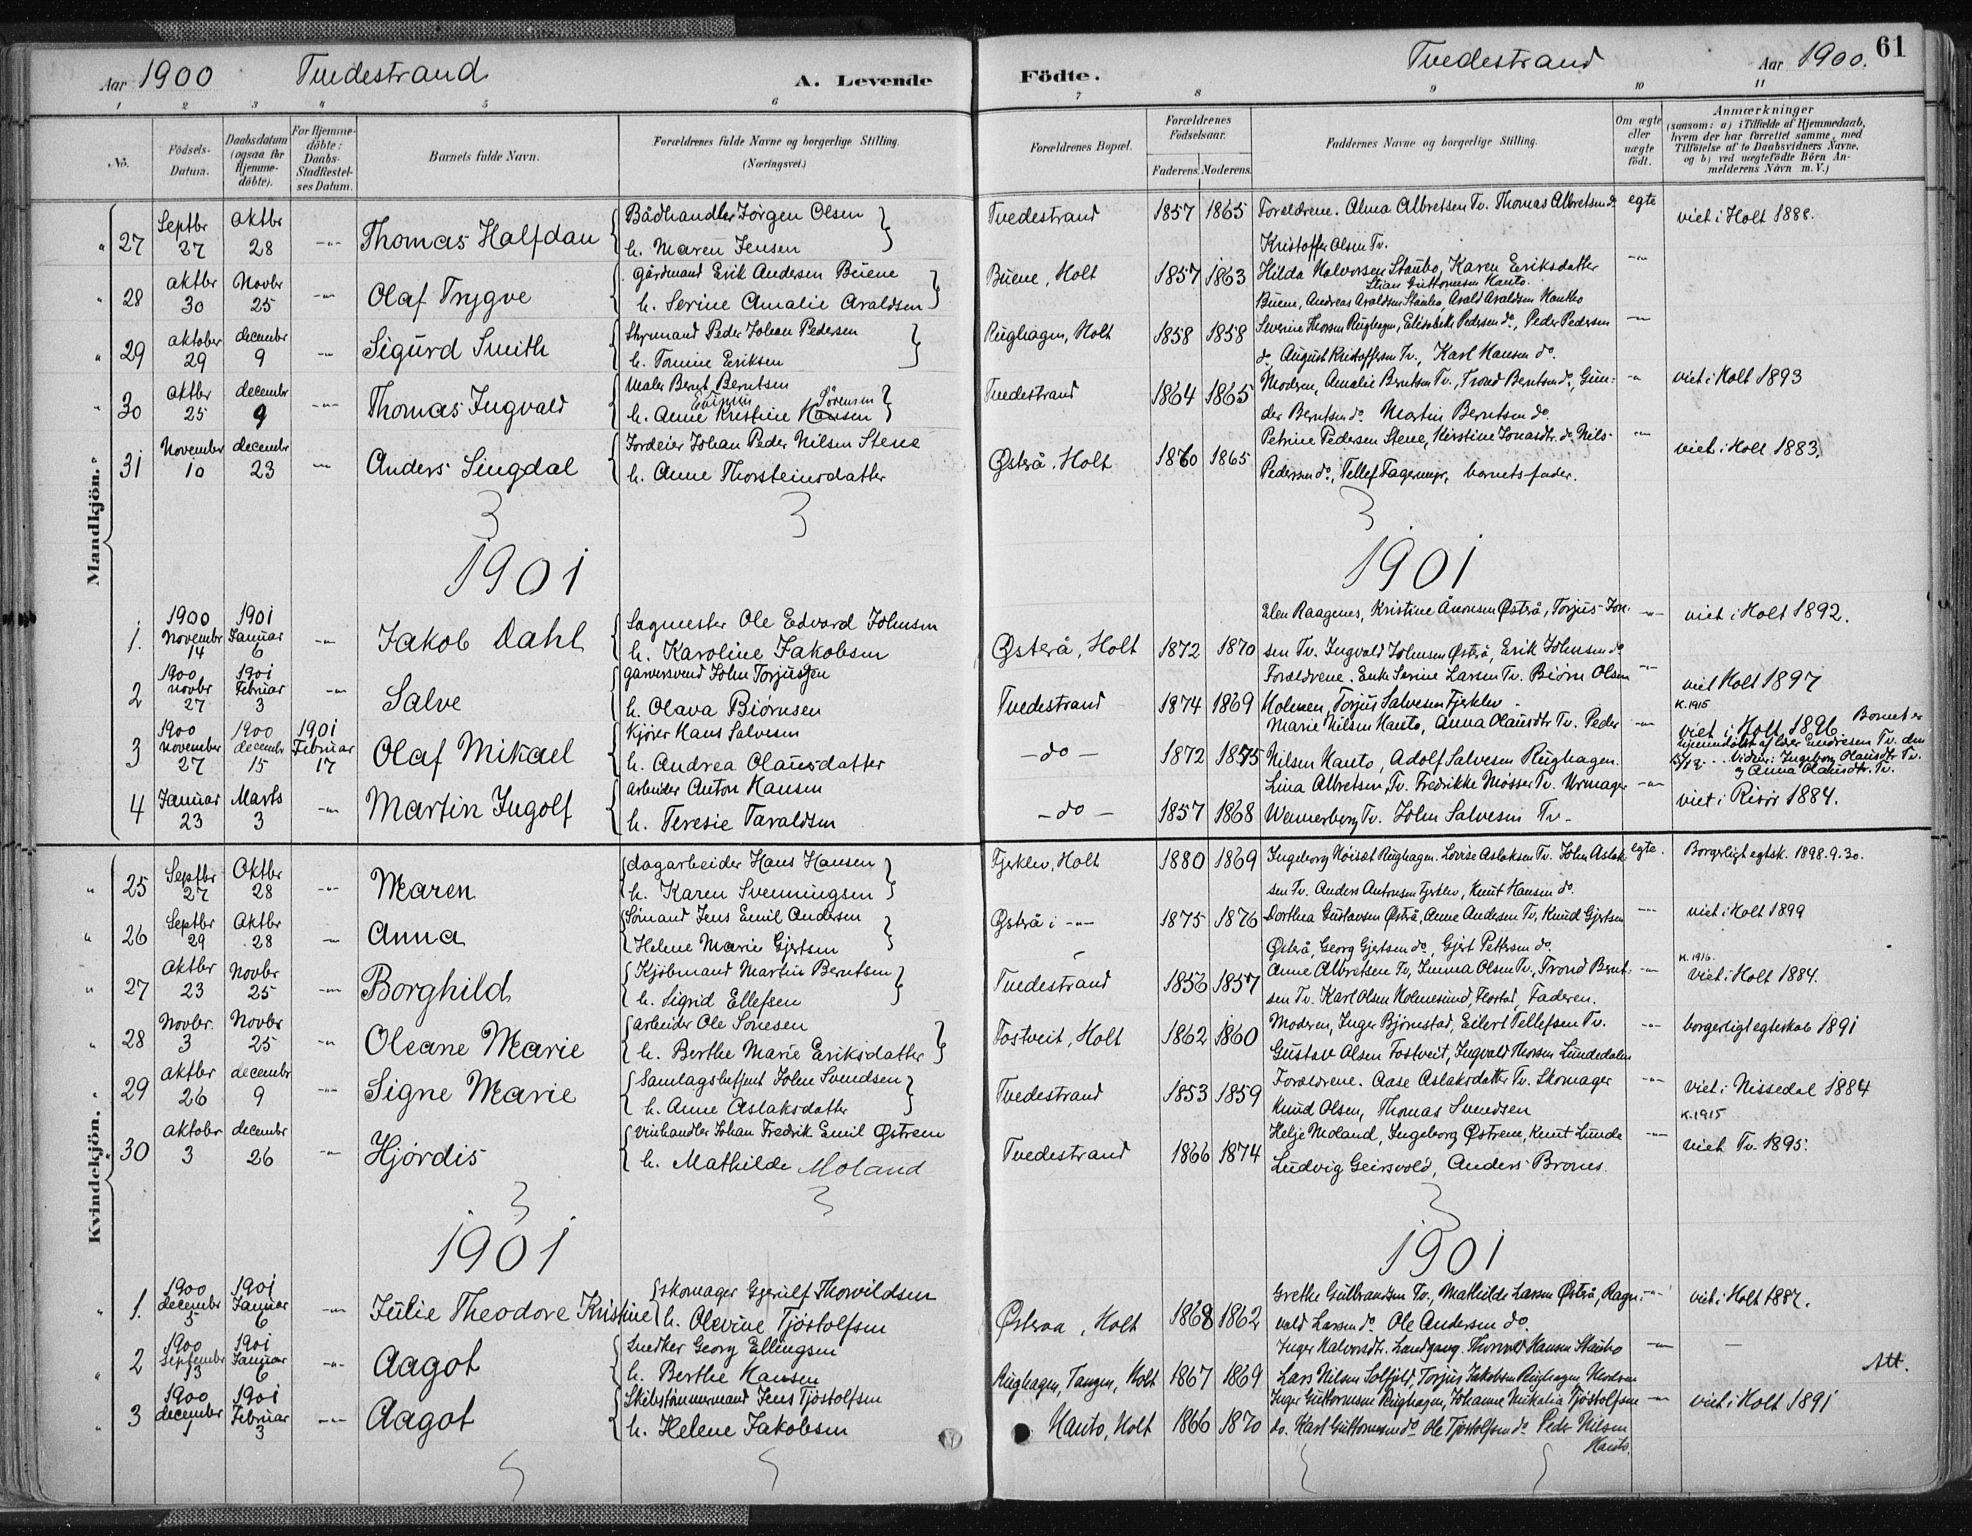 Aar 1900 Tvedestrand A. Levende Födte. Tvedestrand Aar 1900. 61
1 2 3 4 5 6 7 8 9 10 11
No. Födsels-Datum. Daabsdatum (ogsaa för Hjemme-döbte). For Hjemme-döbte: Daabs-Stadfæstel-ses Datum. Barnets fulde Navn. Forældrenes fulde Navne og borgerlige Stilling. (Næringsvei.) Forældrenes Bopæl. Forældrenes Födselsaar. Faderens. Moderens. Faddernes Navne og borgerlige Stilling. Om ægte eller uægte födt. Anmærkninger (saasom: a) i Tilfælde af Hjemmedaab, hvem der har forrettet samme, med Tilföielse af to Daabsvidners Navne, og b) ved uægtefödte Börn An-melderens Navn m. V.)
Mandkjön.
27 Septbr 27 Oktbr 28 Thomas Halfdan Bådhandler Jörgen Olsen Tvedestrand 1857 1865 Forældrene. Alma Albretsen Tv. Thomas Albretsen do egte viet i Holt 1888.
h. Maren Jensen Kristoffer Olsen Tv.
28 Oktbr 30 Novbr 25 Olaf Trygve Gårdmand Erik Andersen Buene Buene, Holt 1857 1863 Hilda Halvorsen Staubo, Karen Eriksdatter
Stian Guttormsen Hanto.
h. Serine Amalie Araldsen Buene, Andreas Araldsen Staubo, Arald Araldsen Hantho
29 Oktober 29 decembr 9 Sigurd Smith Styrmand Peder Johan Pedersen Rughagen, Holt 1858 1858 Severine Thorsen Rughagen, Elisabeth Pedersen do, Peder Pedersen
h. Tomine Eriksen do, August Kristoffersen Tv., Karl Hansen do.
30 Oktbr 25 decembr 9 Thomas Ingvald Maler Bernt Berntsen Tvedestrand 1864 1865 Modren, Amalie Berntsen Tv., Trond Berntsen do, Gun- viet i Holt 1893
h. Anne Kristine Hansen Sörensen der Berntsen do. Martin Berntsen do.
31 November 10 decembr 23 Anders Lingdal Jordeier Johan Peder Nilsen Stene Østerå, Holt 1860 1865 Petrine Pedersen Stene, Kirstine Jonasdtr. do. Nils viet i Holt 1883.
h. Anne Thorsteinsdatter Pedersen do, Tellef Fagermyr, barnets fader.
1901 1901
1. 1900 Novembr 14 1901 Januar 6 Jakob Dahl Sagmester Ole Edvard Johnsen Østerå, Holt 1872 1870 Elen Raagenes, Kristine Ånonsen Østerå, Torjus Jon- viet i Holt 1892.
h. Karoline Jakobsen sen Tv. Ingvald Johnsen Østrå, Erik Johnsen do
2 1900 novbr 27 1901 Februar 3 Salve Garversvend John Torjussen Tvedestrand 1874 1869 Forældrene. Enke Serine Larsen Tv. Biörn Olsen viet Holt 1897
K. 1915
h. Olava Biörnsen Holmen, Torjus Salvesen Fjerklev
3 1900 november 27 1900 decembr 15 1901 Februar 17 Olaf Mikael Kjörer Hans Salvesen -do- 1872 1875 Marie Nilsen Hanto, Anna Olausdtr Tv. Peder viet i Holt 1896 Barnet er
h. Andrea Olausdatter Nilsen Hanto, Adolf Salvesen Rughagen. hjemmedöbt af Endresen Tv. den
15/12. Vidner: Ingeborg Olausdtr Tv.
og Anna Olausdtr. Tv.
4 Januar 23 Marts 3 Martin Ingolf Arbeider Anton Hansen -do- 1857 1868 Lina Albretsen, Tv. Fredrikke Mosser Tv. Urmager viet i Risör 1884.
h. Teresie Taraldsen Wennerberg Tv. John Salvesen Tv.
Kvindekjön.
25 Septbr 27 Oktbr 28 Maren dagarbeider Hans Hansen Fjerklev, Holt 1880 1869 Ingeborg Höisæt Rughagen. Lovise Aslaksen Tv. John Aslak- egte. Borgerligt egtsk. 1898.9.30.
h. Karen Svenningsen sen Tv. Anders Antonsen Fjerklev, Knut Hansen do.
26 Septbr 29 Oktbr 28 Anna Sömand Jens Emil Andersen Østerå i 1875 1876 Dorthea Gustavsen Østrå, Anne Andersen Tv, Knud Gjertsen viet i Holt 1899
Helene Marie Gjertsen Østerå, Georg Gjertsen do, Gjert Pettersen do.
27 Oktbr 23 Novbr 25 Borghild Kjöbmand Martin Berntsen Tvedestrand 1856 1857 Anne Albretsen Tv, Emma Olsen Tv., Trond Bernt- K. 1916. viet i Holt 1884.
h. Sigrid Ellefsen sen Tv. Karl Olsen Holmesund, Flostad, Faderen.
28 Novbr. 3 Novbr 25 Oleane Marie arbeider Ole Sonesen Fostveit, Holt 1862 1860 Modren, Inger Björnstad, Eilert Tellefsen Tv. borgerligt egteskab 1891
h. Berthe Marie Eriksdatter Gustav Olsen Fostveit, Ingvald Thorsen Lundedalen
29 Oktbr 26 decembr 9 Signe Marie Samlagsbetjent John Svendsen Tvedestrand 1853 1859 Forældrene. Aase Aslaksdatter Tv. Skomager viet i Nissedal 1884
h. Anne Aslaksdatter Knud Olsen, Thomas Svendsen K. 1915
30 Oktober 3 decembr 26 Hjördis Vinhandler Johan Fredrik Emil Østrem Tvedestrand 1866 1874 Helje Moland, Ingeborg Østrem, Knut Lunde viet Tv. 1895.
h. Mathilde Moland Ludvig Geirsvold, Anders Brones.
1901 1901
1. 1900 decembr 5 1901 Januar 6 Julie Theodore Kristine skomager Gjerulf Thorvildsen Østeraa, Holt 1868 1862 Grethe Gulbrandsen Tv., Mathilde Larsen Østrå, Ragn- viet i Holt 1887.
h. Olevine Tjöstolfsen vald Larsen do. Ole Andersen do.
2 1900 September 13 1901 Januar 6 Aagot Snedker Georg Ellingsen Rughagen, Tangen, Holt 1867 1869 Inger Halvorsdtr. Landgang. Thorvald Hansen Staubo
h. Berthe Hansen Lars Nilsen Solfjeld, Torjus Jakobsen Rughagen, Modren Att.
3 1900 decembr 7 1901 Februar 3 Aagot Skibstömmermand Jens Tjöstolfsen Hanto, Holt 1866 1870 Inger Guttormsen Rughagen, Johanne Mikalia Tjöstolfsen viet i Holt 1891
h. Helene Jakobsen do. Karl Guttormsen do Ole Tjöstolfsen do Peder Nilsen
Hanto.